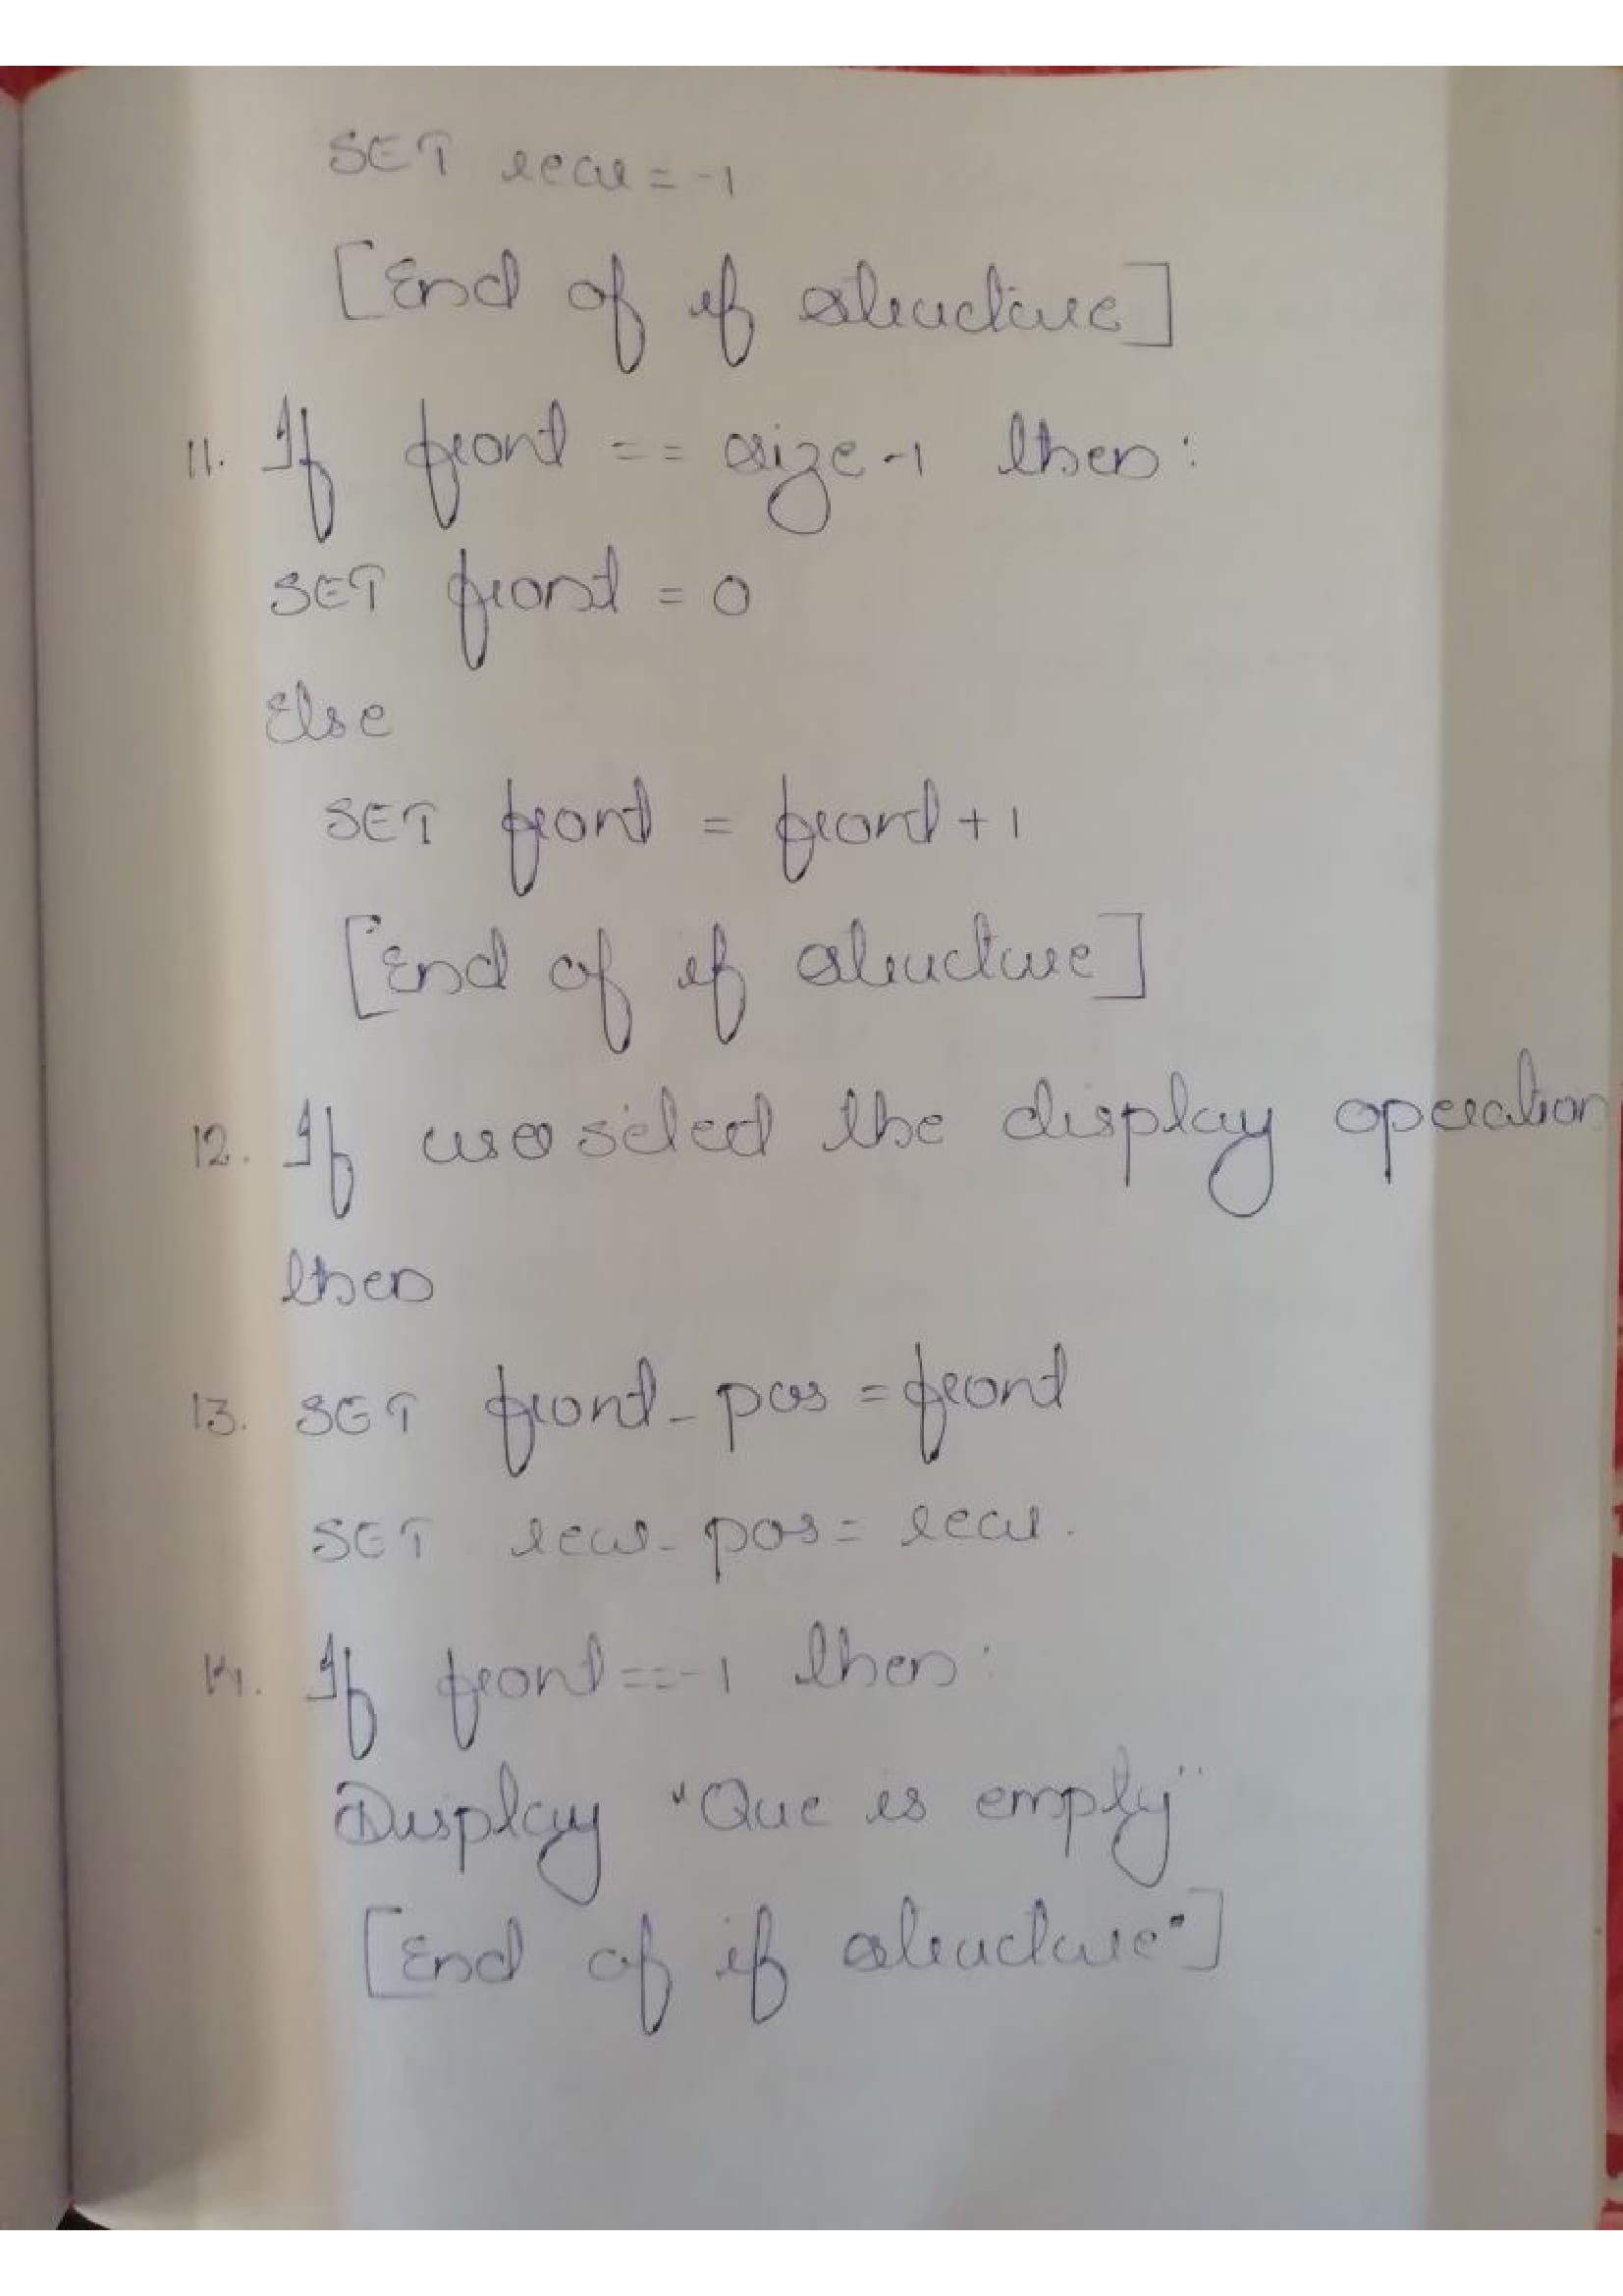 SET rear = -1
[End of if structure]
11. If front == size-1 then:
SET front = 0
Else
SET front = front + 1
[End of if structure]
12. If user select the display operation
then
13. SET front_pos = front
SET rear_pos = rear.
14. If front == -1 then:
Display "Que is empty"
[End of if structure"]